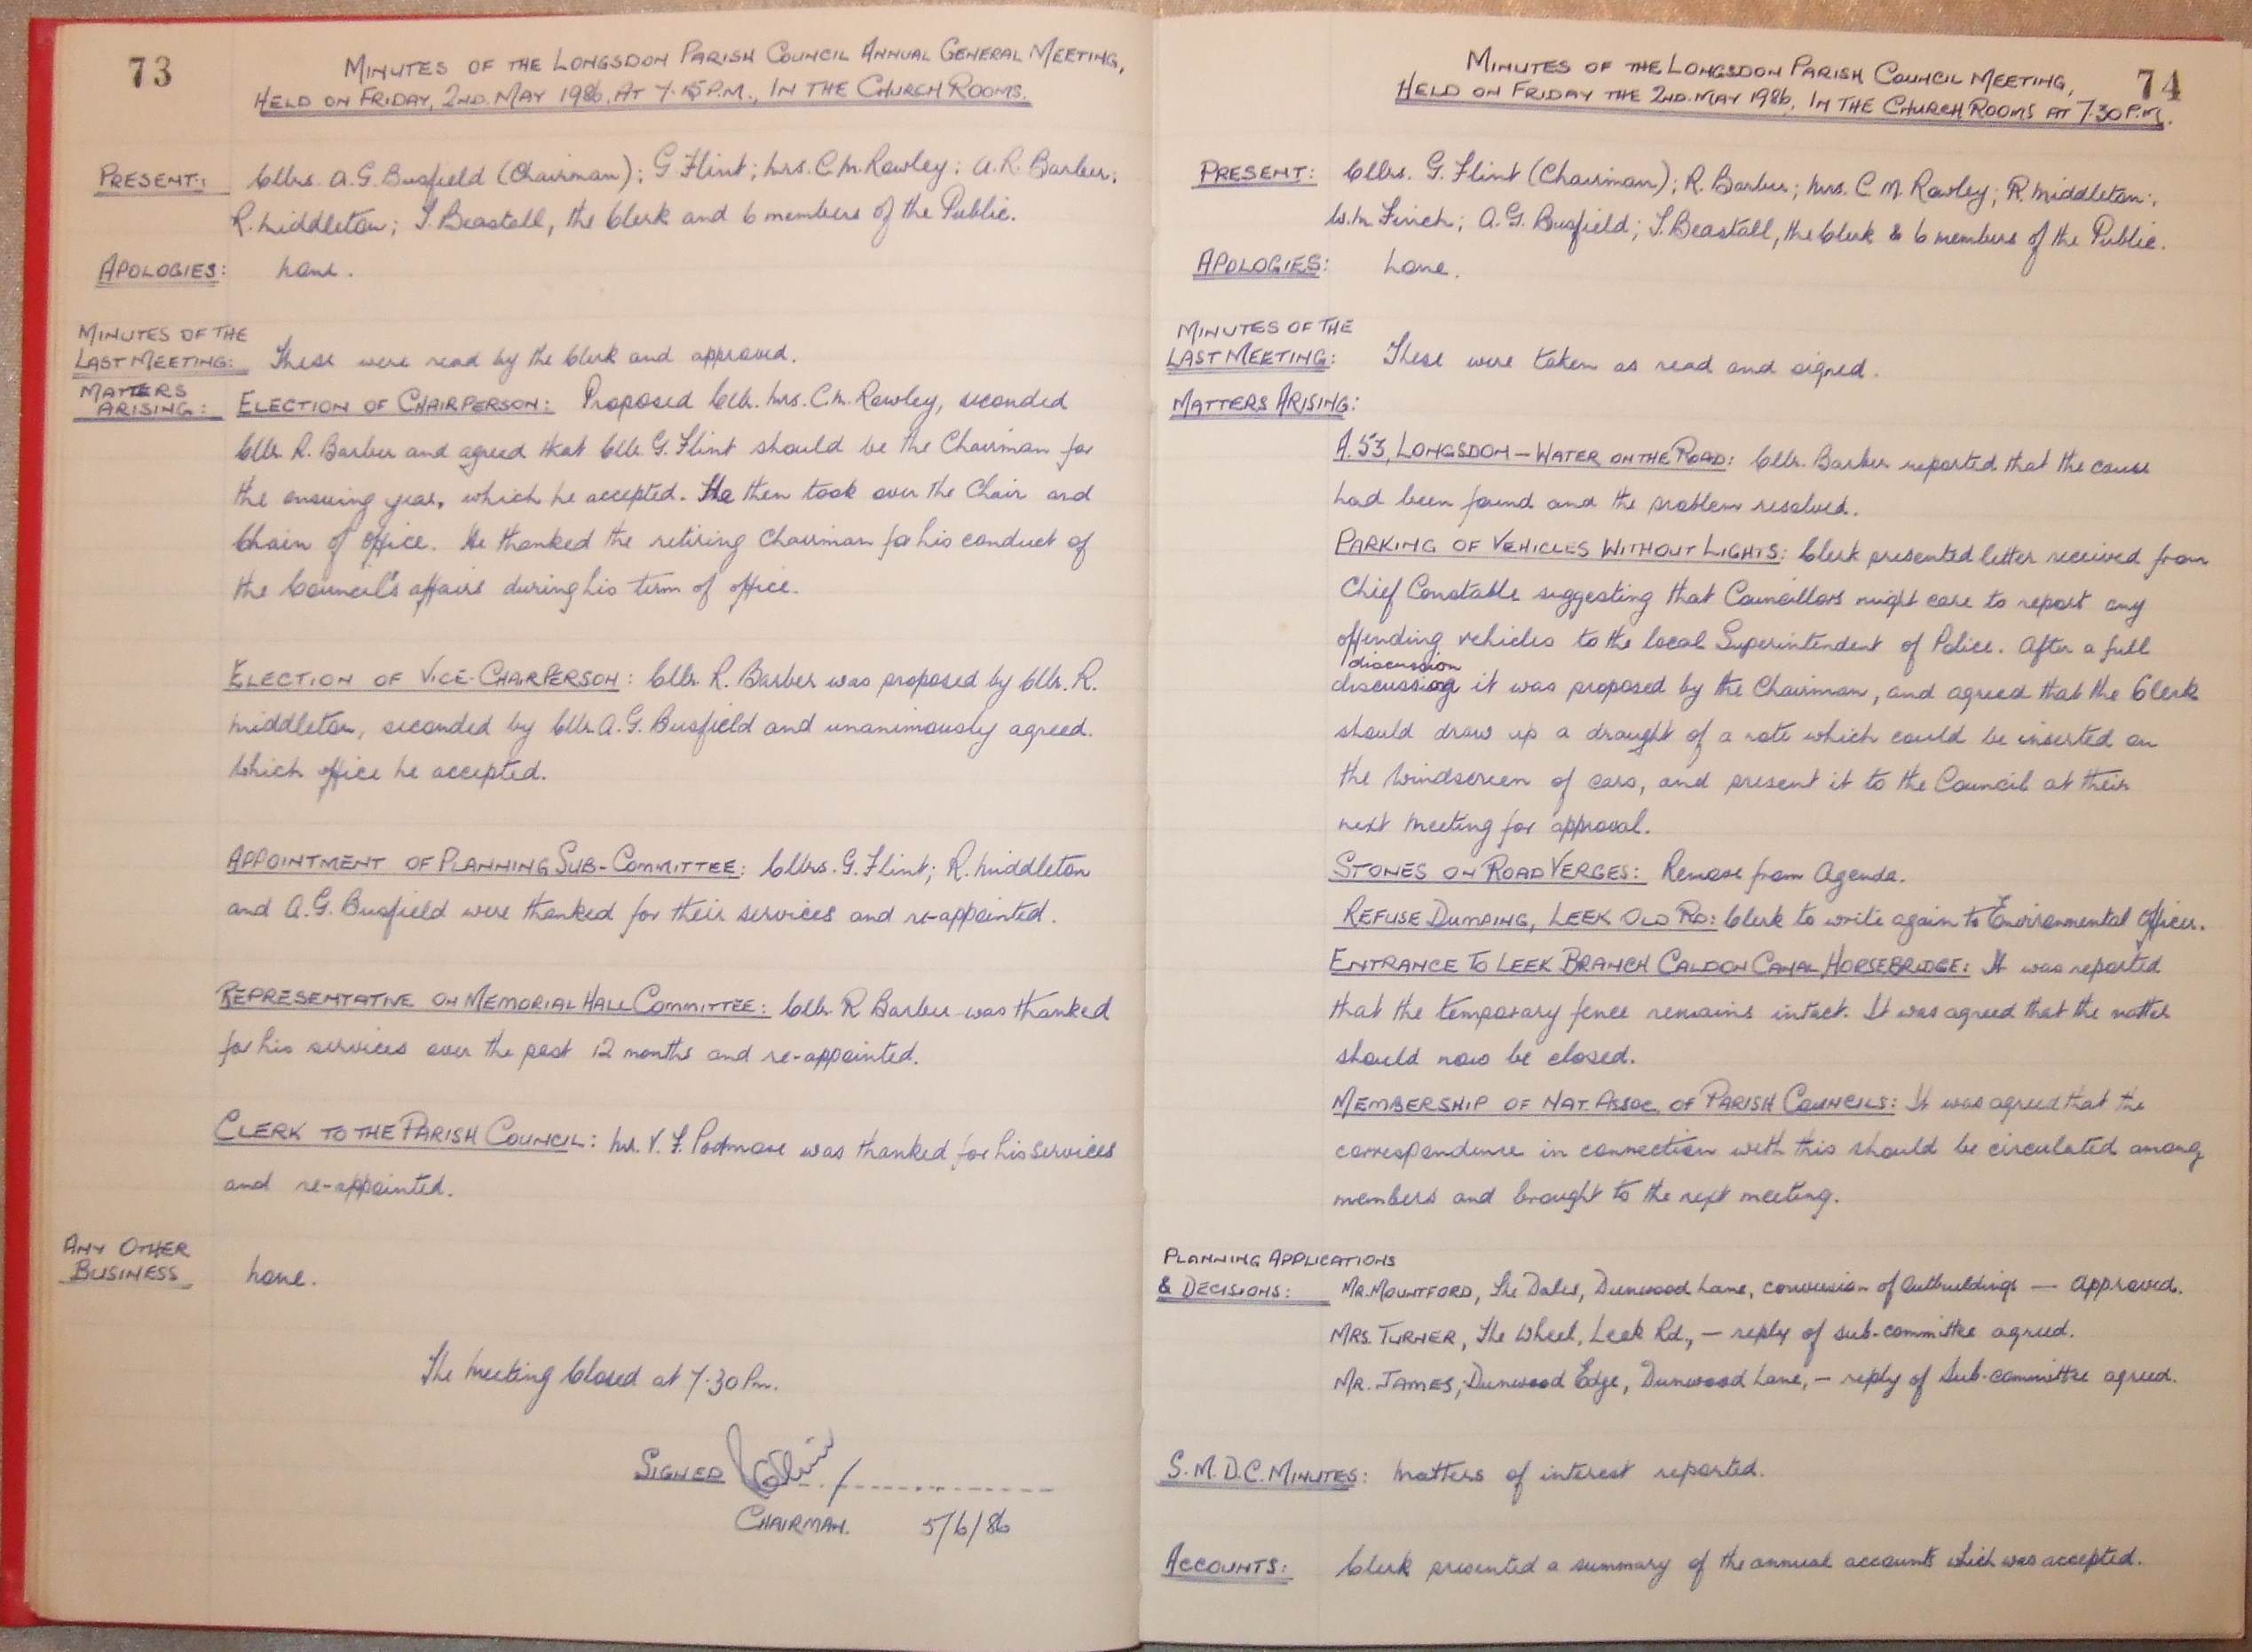 73
MINUTES OF THE LONGSDON PARISH COUNCIL ANNUAL GENERAL MEETING,
HELD ON FRIDAY, 2ND. MAY 1986, AT 7.15 P.M., IN THE CHURCH ROOMS.
PRESENT: Cllrs. A.G. Busfield (Chairman); G Flint; Mrs. C.M. Rowley; A.R. Barber;
R. Middleton; J. Beastall, the Clerk and 6 members of the Public.
APOLOGIES: None.
MINUTES OF THE
LAST MEETING: These were read by the Clerk and approved.
MATTERS
ARISING: ELECTION OF CHAIRPERSON: Proposed Cllr. Mrs. C.M. Rowley, seconded
Cllr. R. Barber and agreed that Cllr. G. Flint should be the Chairman for
the ensuing year, which he accepted. He then took over the Chair and
Chain of Office. He thanked the retiring Chairman for his conduct of
the Council's affairs during his term of office.
ELECTION OF VICE-CHAIRPERSON: Cllr. R. Barber was proposed by Cllr. R.
Middleton, seconded by Cllr. A.G. Busfield and unanimously agreed.
Which office he accepted.
APPOINTMENT OF PLANNING SUB-COMMITTEE: Cllrs. G. Flint; R. Middleton
and A.G. Busfield were thanked for their services and re-appointed.
REPRESENTATIVE ON MEMORIAL HALL COMMITTEE: Cllr. R Barber was thanked
for his services over the past 12 months and re-appointed.
CLERK TO THE PARISH COUNCIL: Mr. V. F. Podmore was thanked for his services
and re-appointed.
ANY OTHER
BUSINESS None.
The Meeting Closed at 7.30 Pm.
SIGNED
CHAIRMAN. 5/6/86
74
MINUTES OF THE LONGSDON PARISH COUNCIL MEETING,
HELD ON FRIDAY THE 2ND. MAY 1986, IN THE CHURCH ROOMS AT 7.30 P.M.
PRESENT: Cllrs. G. Flint (Chairman); R. Barber; Mrs. C M. Rowley; R. Middleton;
W.M. Finch; A.G. Busfield; J. Beastall, the Clerk & 6 members of the Public.
APOLOGIES: None.
MINUTES OF THE
LAST MEETING: These were taken as read and signed.
MATTERS ARISING:
A.53, LONGSDON – WATER ON THE ROAD: Cllr. Barber reported that the cause
had been found and the problem resolved.
PARKING OF VEHICLES WITHOUT LIGHTS: Clerk presented letter received from
Chief Constable suggesting that Councillors might care to report any
offending vehicles to the local Superintendent of Police. After a full
discussion
discussiog it was proposed by the Chairman, and agreed that the Clerk
should draw up a draught of a note which could be inserted on
the Windscreen of cars, and present it to the Council at their
next Meeting for approval.
STONES ON ROAD VERGES: Remove from Agenda.
REFUSE DUMPING, LEEK OLD RD: Clerk to write again to Environmental Officer.
ENTRANCE TO LEEK BRANCH CALDON CANAL, HORSEBRIDGE: It was reported
that the temporary fence remains intact. It was agreed that the matter
should now be closed.
MEMBERSHIP OF NAT. ASSOC. OF PARISH COUNCILS: It was agreed that the
correspondence in connection with this should be circulated among
members and brought to the next meeting.
PLANNING APPLICATIONS
& DECISIONS: MR. MOUNTFORD, The Dales, Dunwood Lane, conversion of Outbuildings — Approved.
MRS. TURNER, The Wheel, Leek Rd., – reply of sub-committee agreed.
MR. JAMES, Dunwood Edge, Dunwood Lane, – reply of Sub-committee agreed.
S.M.D.C. MINUTES: Matters of interest reported.
ACCOUNTS: Clerk presented a summary of the annual accounts which was accepted.